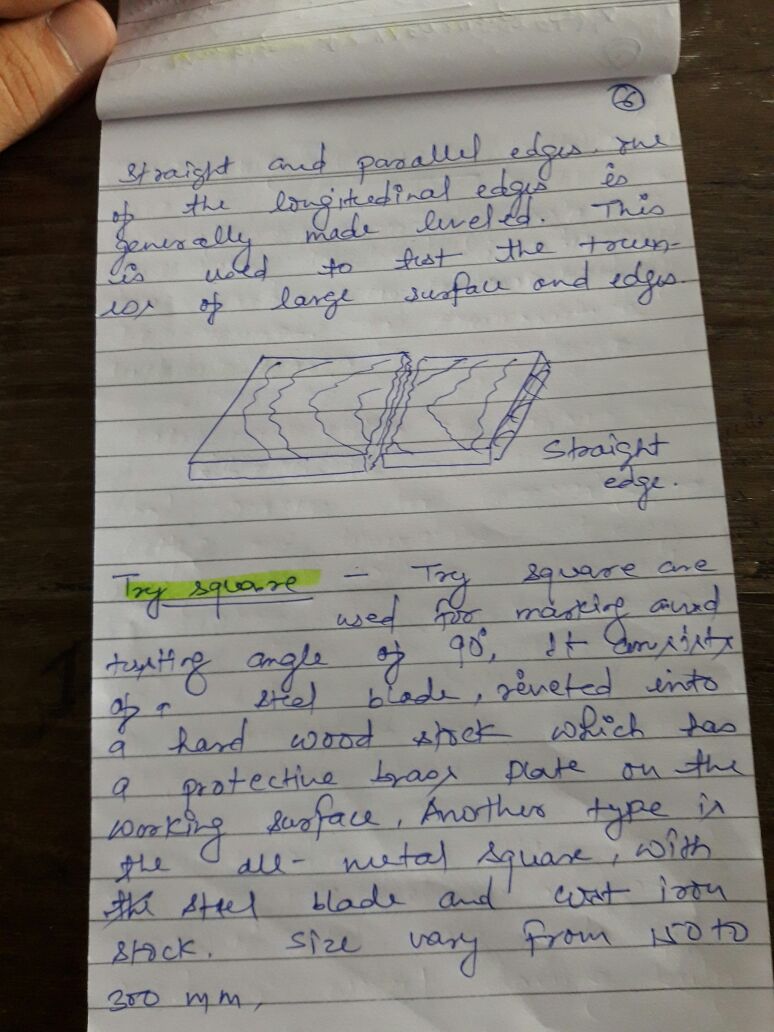 6
Straight and parallel edges. one
of the longitudinal edges is
generally made leveled. This
is used to test the truen-
ess of large surface and edges.
Straight
edge.
Try square - Try square are
used for marking and
testing angle of 90°, It consists
of a steel blade, reveted into
a hard wood stock which has
a protective brass plate on the
working surface, Another type is
the all- metal square, with
the steel blade and cast iron
stock. Size vary from 150 to
300 mm,